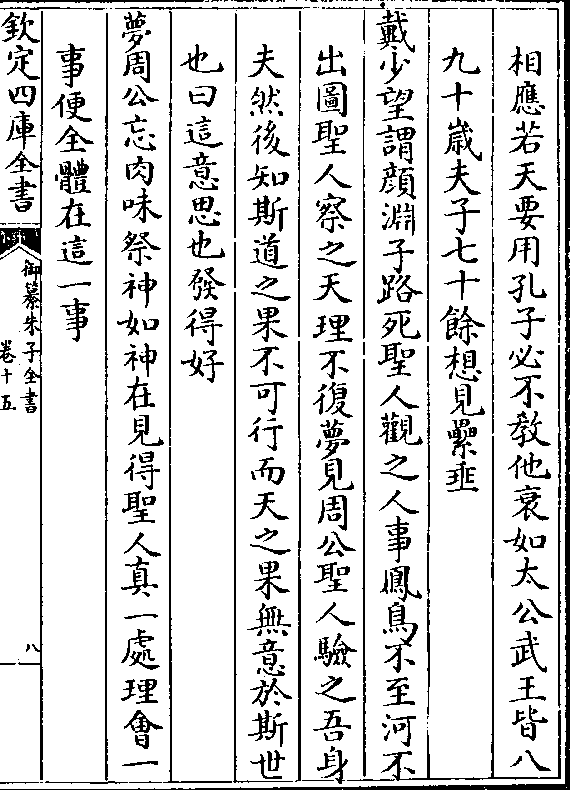 相應若天要用孔子必不敎他衰如太公武王皆八
九十歲夫子七十餘想見纍垂
戴少望謂顔淵子路死聖人觀之人事鳳鳥不至河不
出圖聖人察之天理不復夢見周公聖人驗之吾身
夫然後知斯道之果不可行而天之果無意於斯世
也曰這意思也發得好
夢周公忘肉味祭神如神在見得聖人真一處理會一
事便全體在這一事
欽定四庫全書
御纂朱子全書
卷十五
八